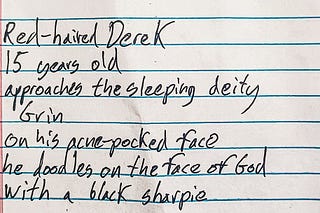 Red-haired Derek
15 years old
approaches the sleeping deity
Grin
on his acne-pocked face
he doodles on the face of God
with a black sharpie